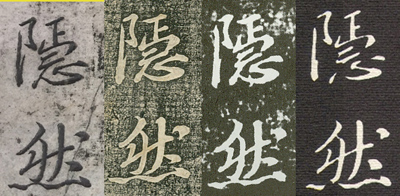 隱然
隱然
隱然
隱然